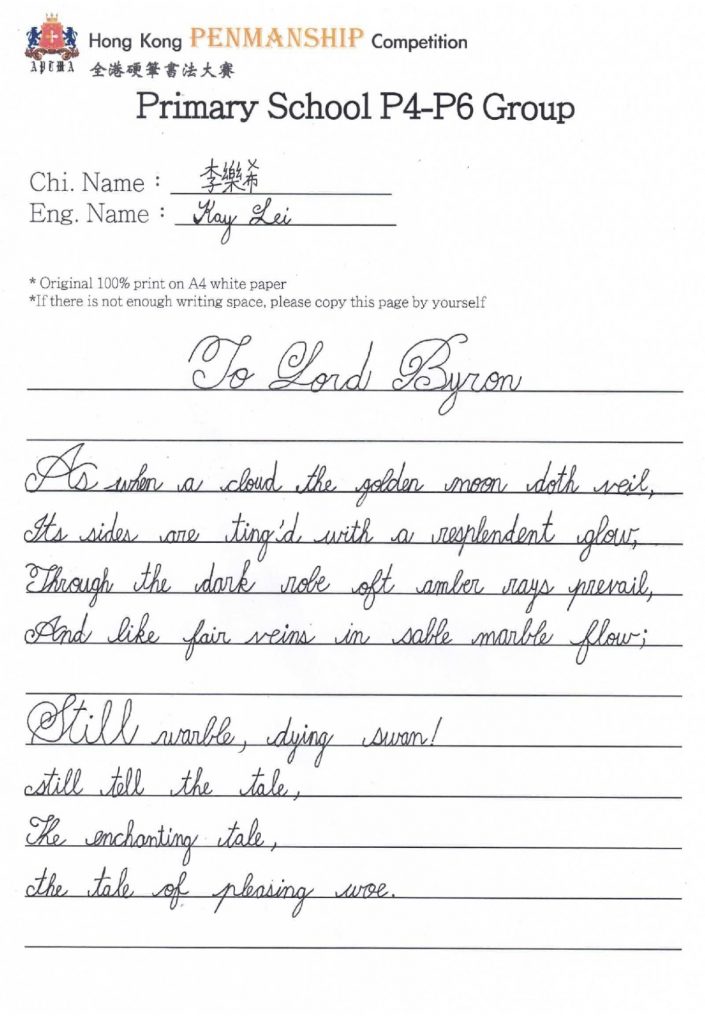 Hong Kong PENMANSHIP Competition
全港硬筆書法大賽
Primary School P4-P6 Group
Chi. Name : 李樂希
Eng. Name : Kay Lei
* Original 100% print on A4 white paper
*If there is not enough writing space, please copy this page by yourself
To Lord Byron
As when a cloud the golden moon doth veil,
Its sides are ting'd with a resplendent glow,
Through the dark robe oft amber rays prevail,
And like fair veins in sable marble flow;
Still warble, dying swan!
still tell the tale,
The enchanting tale,
the tale of pleasing woe.